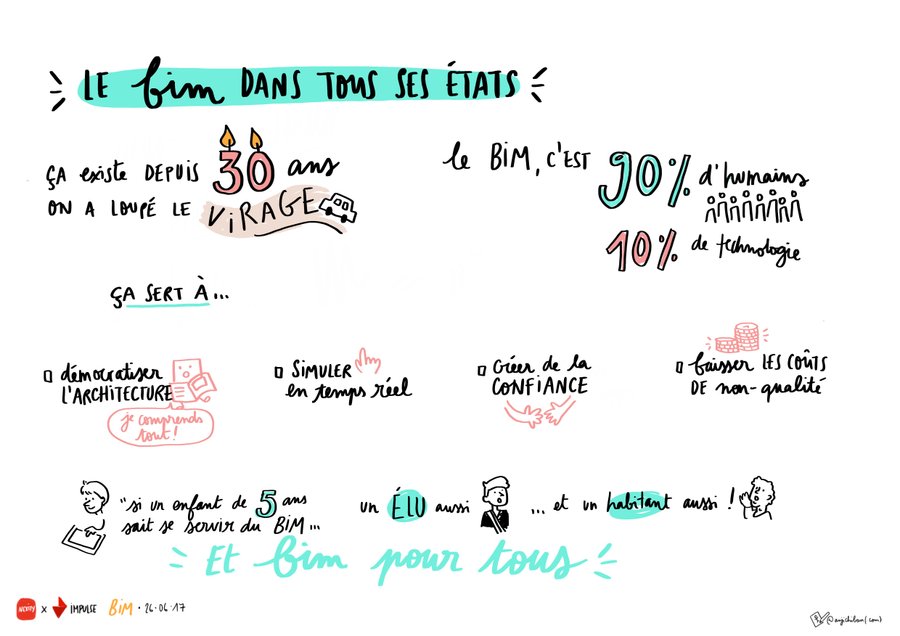 LE bim DANS TOUS SES ÉTATS
ÇA existe DEPUIS 30 ans
ON A LOUPÉ LE VIRAGE
le BIM, C'EST 90% d'humains
10% de technologie
ÇA SERT À...
démocratiser
L'ARCHITECTURE
je comprends
tout !
SIMULER
en temps réel
Créer de la
CONFIANCE
baisser LES COÛTS
DE non-qualité
"si un enfant de 5 ans
sait se servir du BIM...
un ÉLU aussi
... et un habitant aussi !
Et bim pour tous
x IMPULSE BIM • 26•06•17